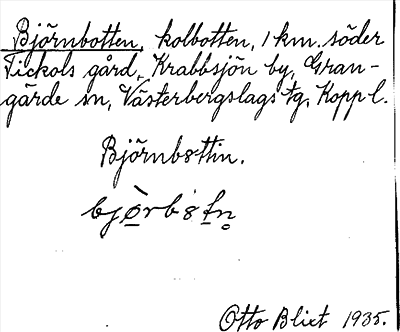 Björnbotten, kolbotten, 1 km. söder
Tickols gård, Krabbsjön by, Gran-
gärde sn, Västerbergslags tg, Kopp l.
Björnb8ttin.
Otto Blixt 1935.